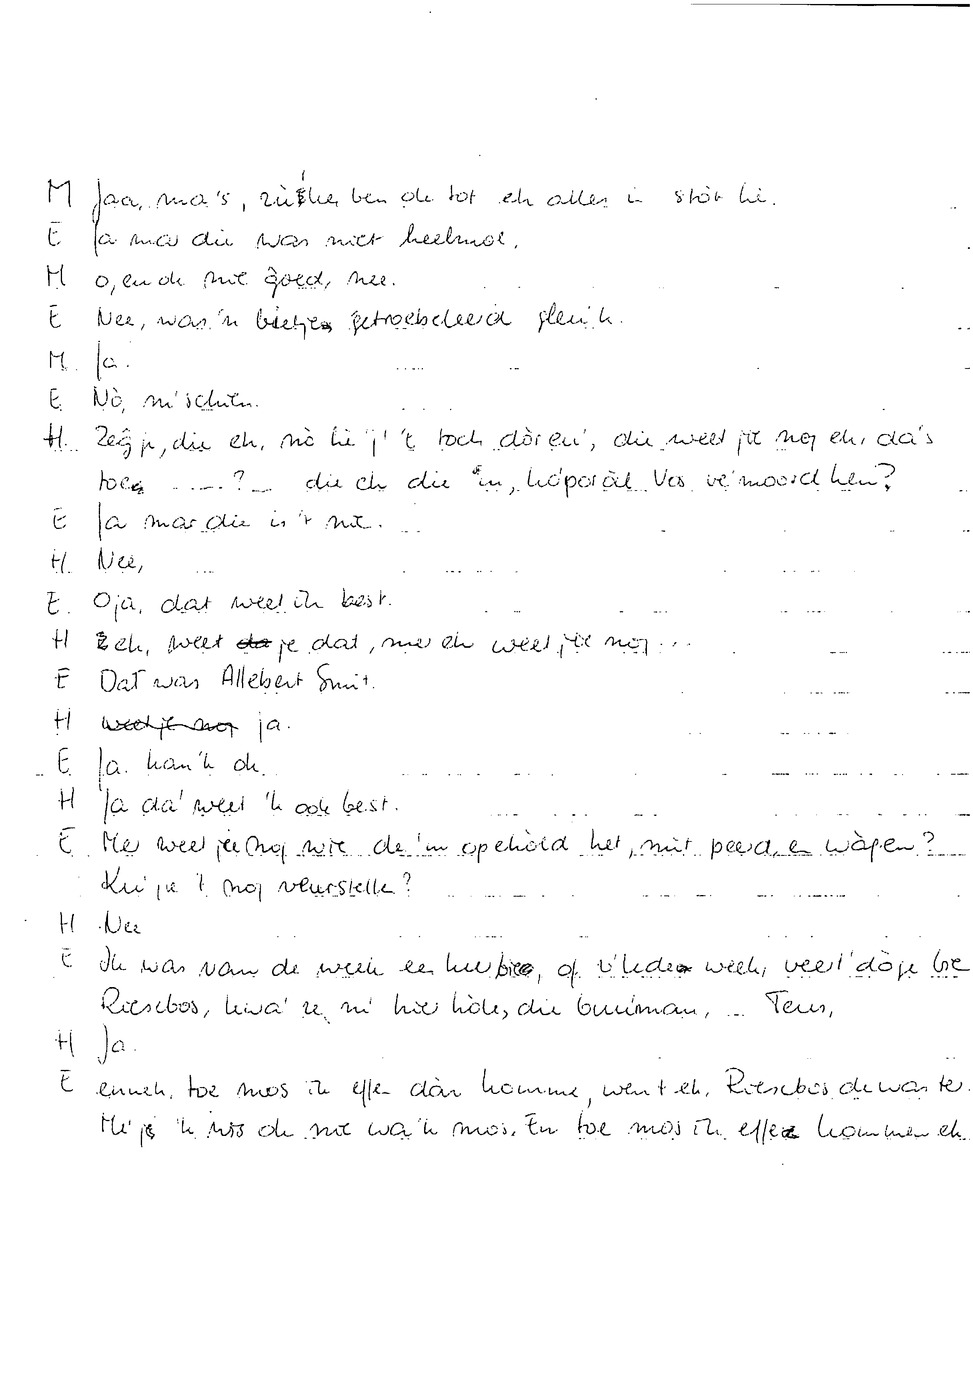 M Jaa, ma's, zukke ben ok tot eh alles in stòt hè.
E Ja mar die was niet heelmol.
M o, en ok nie goed, nee.
E Nee, was 'n bietje getroebeleerd gleuik.
M. Ja.
E. Nò, m'schien.
H. Zeg je, die eh, nò hè 'j' 't toch dòren', die weet jie nog eh, da's
toen .....? die eh die 'm, kòporàal Vos ve'moord hen?
E Ja mar die is 't nie.
H. Nee,
E. Oja, dat weet ik best.
H eh, weet je dat, me eh weet jie nog ...
E Dat was Allebert Smit.
H weet je nog ja.
E Ja. kan 'k ok.
H Ja da' weet 'k ook best.
E. Me weet jie nog wie de 'm opehòld het, mit peerd en wàgen?
Kui je 't nog veurstelle?
H Nee
E Ik was vam de week een, of v'leden week, veer
Riesebos, kwa' ze mi' hier hòle, die buurman, ... Teus,
H Ja.
E enneh, toe mos ik effen dàn komme, want eh, Riesebos de was te
Me je 'k wis ok nie wa 'k mos. En toe mos ik effe kommen eh